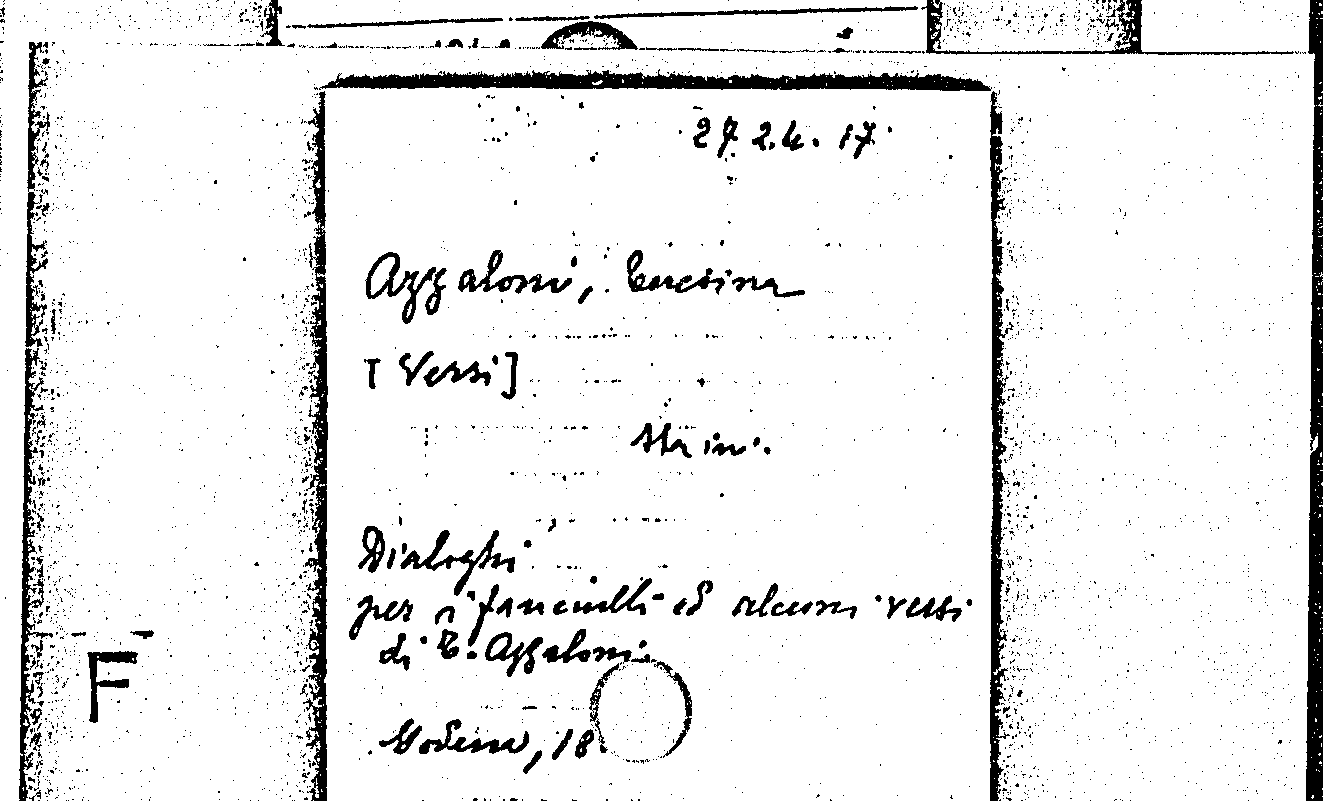 27 2.4. 17
Azzaloni, Ersina
[Versi]
Sta in:
Dialoghi
per i fanciulli ed alcuni versi
di E. Azzaloni.
Modena, 18
F